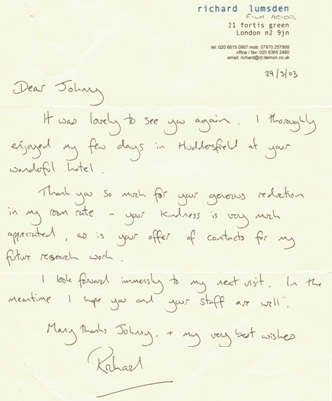 richard lumsden
FILM ACTOR
21 fortis green
London n2 9jn
tel: 020 8815 0907 mob: 07970 257859
office / fax: 020 8365 2480
email: richard@rl.demon.co.uk
29/3/03
Dear Johny
It was lovely to see you again. I thoroughly
enjoyed my few days in Huddersfield at your
wonderful hotel.
Thank you so much for your generous reduction
in my room rate - your kindness is very much
appreciated, as is your offer of contacts for my
future research work.
I look forward immensely to my next visit. In the
meantime I hope you and your staff are well.
Many thanks Johny, + my very best wishes
Richard